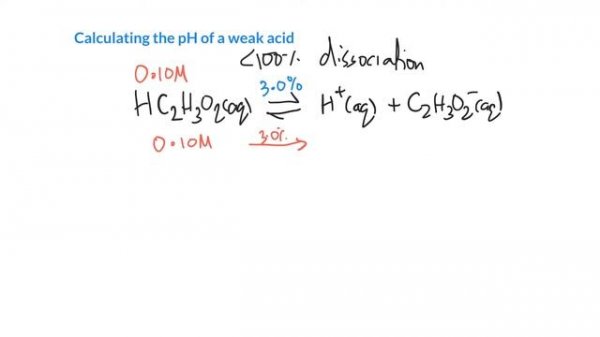 Calculating the pH of a weak acid
<100% dissociation
0.10M
3.0%
HC₂H₃O₂(aq) ⇌ H⁺(aq) + C₂H₃O₂⁻(aq)
0.10M 3.0%